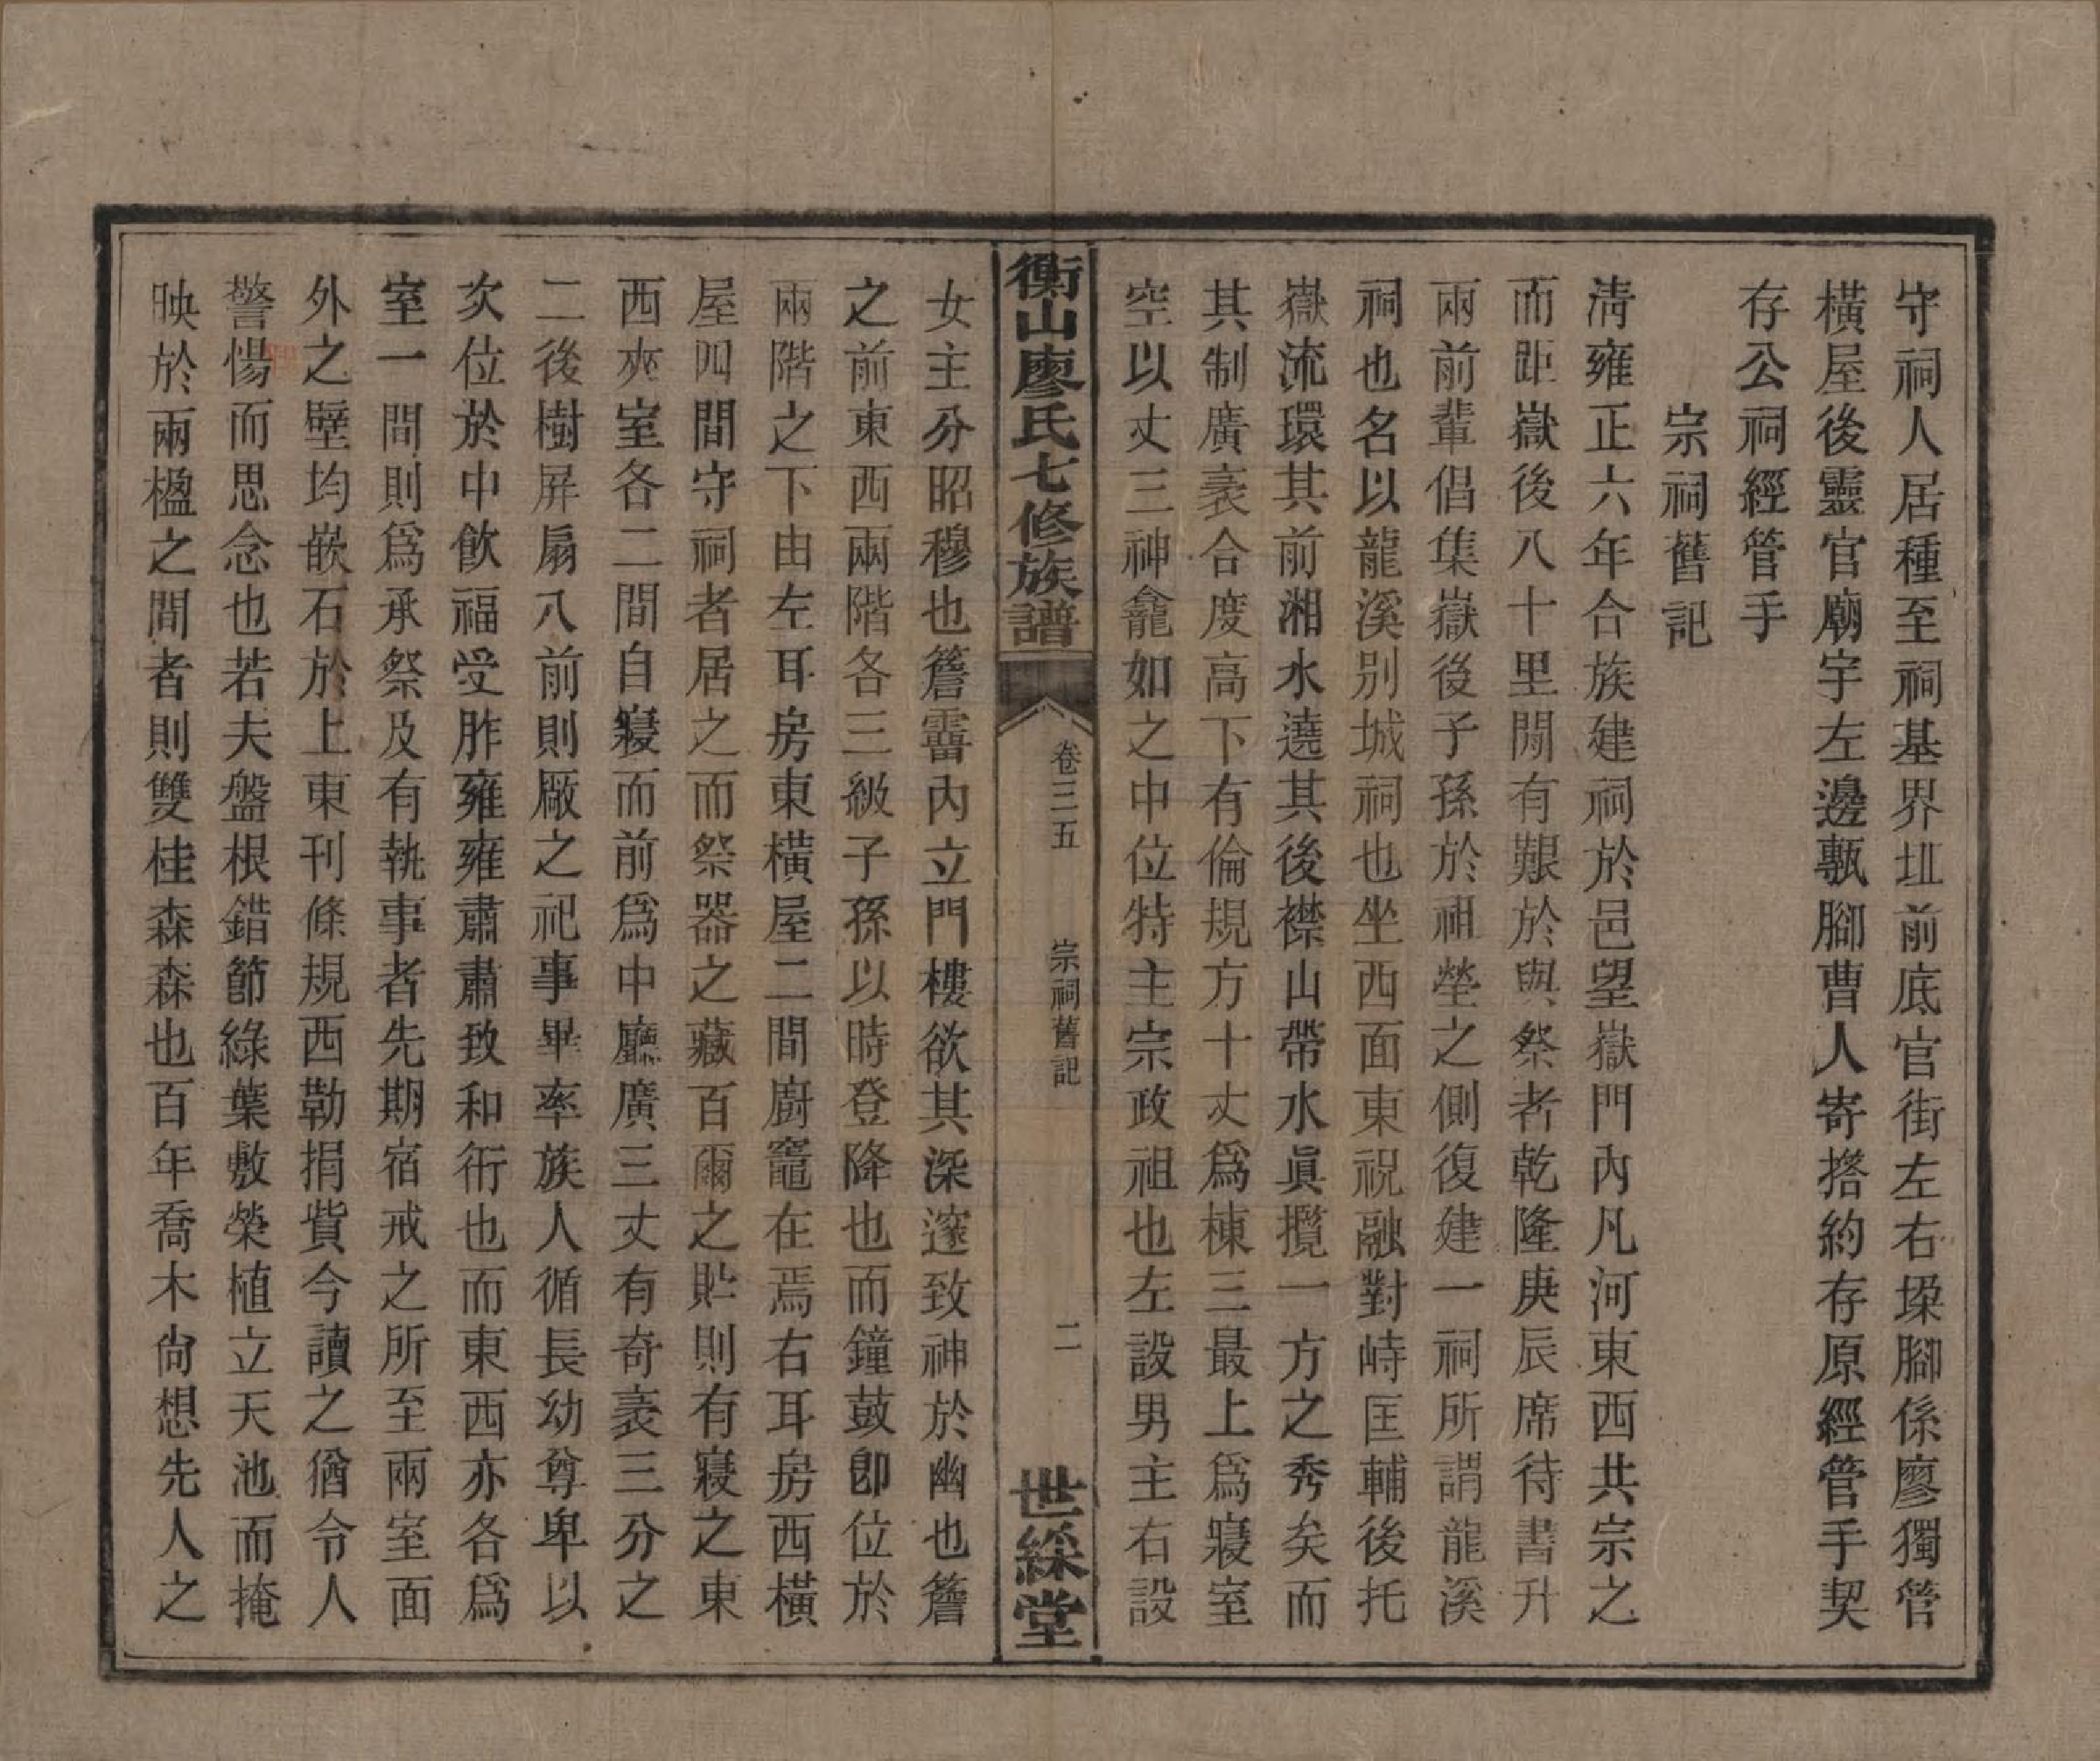 守祠人居種至祠基界址前底官街左右垛腳係廖獨管
橫屋後靈官廟宇左邊甎腳曹人寄搭約存原經管手契
存公祠經管手
宗祠舊記
淸雍正六年合族建祠於邑望嶽門內凡河東西共宗之
而距嶽後八十里閒有艱於與祭者乾隆庚辰席待書升
兩前輩倡集嶽後子孫於祖塋之側復建一祠所謂龍溪
祠也名以龍溪別城祠也坐西面東祝融對峙匡輔後托
嶽流環其前湘水遶其後襟山帶水眞攬一方之秀矣而
其制廣袤合度高下有倫規方十丈爲棟三最上爲寢室
空以丈三神龕如之中位特主宗政祖也左設男主右設
衡山廖氏七修族譜
卷三五
宗祠舊記
二
世綵堂
女主分昭穆也簷霤內立門樓欲其深邃致神於幽也簷
之前東西兩階各三級子孫以時登降也而鐘鼓卽位於
兩階之下由左耳房東橫屋二間廚竈在焉右耳房西橫
屋四間守祠者居之而祭器之藏百爾之貯則有寢之東
西夾室各二間自寢而前爲中廳廣三丈有奇袤三分之
二後樹屏扇八前則廠之祀事畢率族人循長幼尊卑以
次位於中飮福受胙雍雍肅肅致和衎也而東西亦各爲
室一間則爲承祭及有執事者先期宿戒之所至兩室面
外之壁均嵌石於上東刊條規西勒捐貲今讀之猶令人
警惕而思念也若夫盤根錯節綠葉敷榮植立天池而掩
映於兩楹之間者則雙桂森森也百年喬木尙想先人之